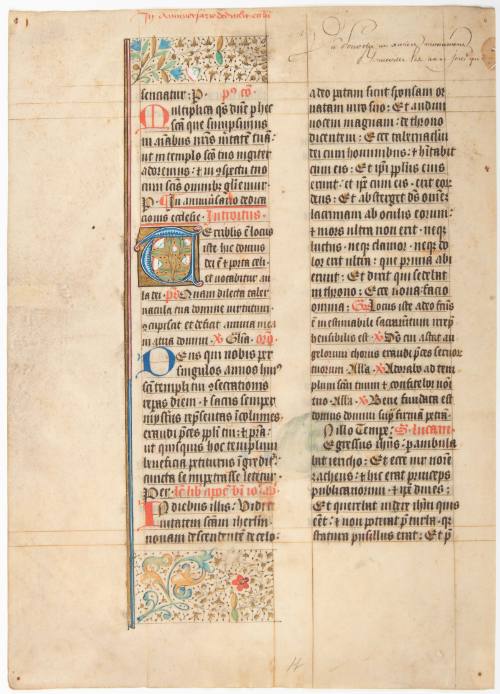 In anniversario dedicatˀ eccliē
servatur · P · pꝰ cō ·
Multiplica qs̄ dūe p hec
sc̄a que sumpsimus
in aīabus nr̄is vītatē tuā:
ut in templo sc̄o tuo iugiter
adoremus : et in cspectu tuo
cum sc̄is omnibꝫ gl̄iemur .
P · In anniv̄sario dedica
cionis ecclesie · Introitus ·
Terribilis ē locus
iste hic domus
dei ē et porta celi :
et vocabitur au
la dei · pꝰ Quam dilecta taber
nacula tua domine virtutum :
ɔcupiscit et deficit anima mea
in atria domini · ℣ Gl̄ia · orō ·
Deus qui nobis per
singulos annos huiꝰ
sc̄i templi tui ɔsecrationis
reparas diem · et sacris semper
mysterijs repn̄tas īcolumes :
exaudi p̄ces ppl̄i tui : et pr̄a :
ut quisquis hoc templum
beneficia petiturus īgredit̄ :
cuncta se impetrasse letetur .
Per · Lc̄ lib apoc̄ bi io ap̄
In diebus illis : Vidi ci
vitatem sc̄am iherl̄m
novam descendentē de celo :
a deo patam sicut sponsam or
natam viro suo : Et audivi
vocem magnam : de throno
dicentem : Ecce tabernaclm̄
dei cum hominibus : et hītabit
cum eis · Et ip̄i pplus eius
erunt · et ip̄e cum eis · erit eoꝝ
deus · Et absterget ds̄ omnē
lacrimam ab oculis eorum :
et mors ultra non erit · neqꝫ
luctus · neqꝫ clamor · neqꝫ do
lor erit ultra : que prima abi
erunt · Et dixit qui sedebat
in throno : Ecce nova facio
omnia · Gr̄ Locus iste a deo fcūs
ē inestimabile sacramētum irrep̄
hensibilis est · ℣ Ds̄ cui astat an
gelorum chorus exaudi p̄ces servoꝝ
tuorum · Alla · ℣ Adorabo ad tem
plum sc̄m tuum et confitebor nōi
tuo · Alla · ℣ Bene fundata est
domus domini supͣ firmam petrā ·
In illo Tempe : S. lucam ·
Egressus ihūs : pambula
bat iericho : Et ecce vir noīe
zacheus : et hic erat princeps
publicanorum · et ip̄e dives :
Et querebat videre ihūm quis
eēt : et nō poterat p̄ turba · qꝛ
statura pusillus erat : Et p̄
14